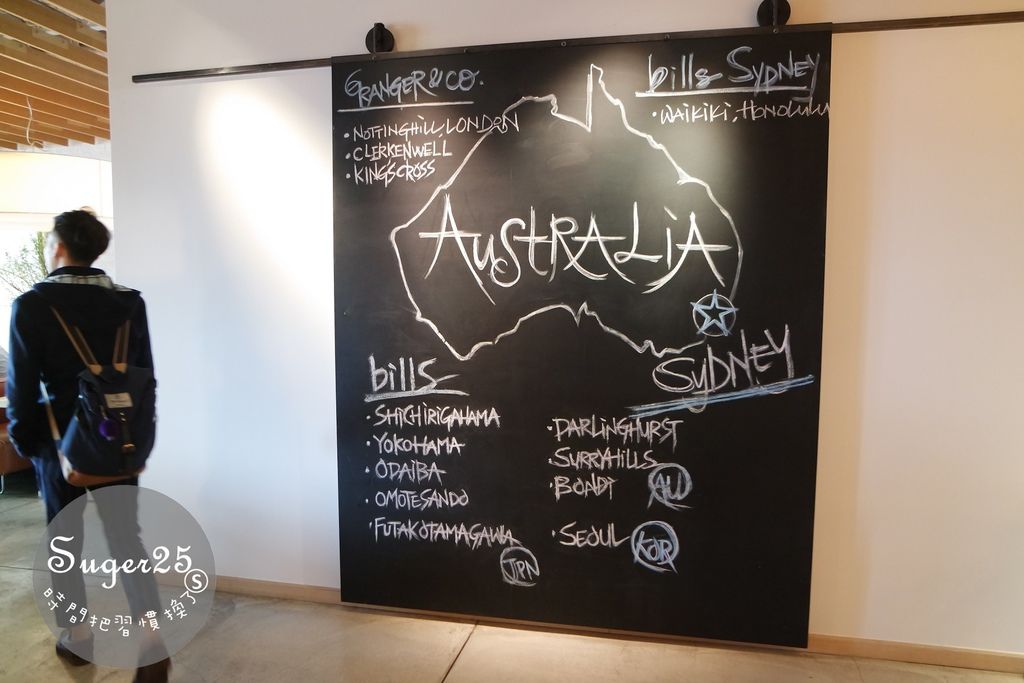 GRANGER & CO.
• NOTTINGHILL, LONDON
• CLERKENWELL
• KING'S CROSS
bills SYDNEY
• WAIKIKI, HONOLULU
AUSTRALIA
SYDNEY
bills
• SHICHIRIGAHAMA
• YOKOHAMA
• ODAIBA
• OMOTESANDO
• FUTAKOTAMAGAWA
JPN
• DARLINGHURST
• SURRYHILLS
• BONDI
AU
• SEOUL
KOR
Suger25
S
時間把習慣換了